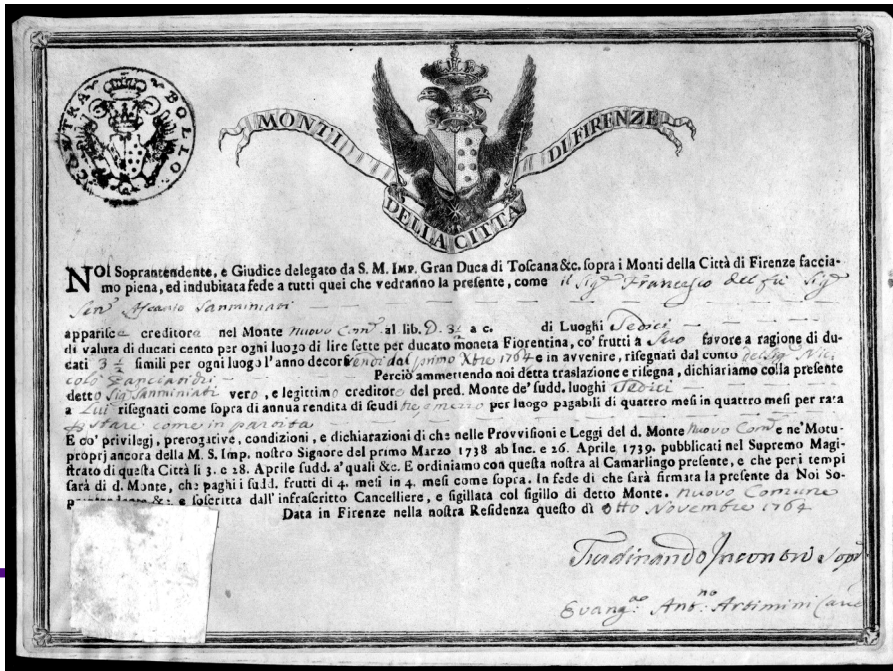 CONTRA BOLLO
MONTI DELLA CITTA DI FIRENZE
NOI Soprantendente, e Giudice delegato da S. M. IMP. Gran Duca di Toscana &c. sopra i Monti della Città di Firenze faccia-
mo piena, ed indubitata fede a tutti quei che vedranno la presente, come il Sig.e Francesco del fù Sig.e
Sen.e Ascanio Sanminiati
apparisce creditore nel Monte Nuovo Com.e al lib. D. 3 a c. di Luoghi Tedici
di valuta di ducati cento per ogni luogo di lire sette per ducato moneta Fiorentina, co' frutti a Suo favore a ragione di du-
cati 3 ½ simili per ogni luogo l'anno decorsvendi dal primo Xbre 1764 e in avvenire, risegnati dal conto del Sig.e Nic-
colò Panciatichi
Perciò ammettendo noi detta traslazione e risegna, dichiariamo colla presente
detto Sig.e Sanminiati vero, e legittimo creditore del pred. Monte de' sudd. luoghi Tedici
a Lui risegnati come sopra di annua rendita di scudi tre e mezzo per luogo pagabili di quattro mesi in quattro mesi per rata
stare come in partita
E co' privilegj, prerogative, condizioni, e dichiarazioni di che nelle Provvisioni e Leggi del d. Monte Nuovo Com.e e ne' Motu-
proprj ancora della M. S. Imp. nostro Signore del primo Marzo 1738 ab Inc. e 26. Aprile 1739. pubblicati nel Supremo Magi-
strato di questa Città li 3. e 28. Aprile sudd. a' quali &c. E ordiniamo con questa nostra al Camarlingo presente, e che per i tempi
sarà di d. Monte, che paghi i sudd. frutti di 4. mesi in 4. mesi come sopra. In fede di che sarà firmata la presente da Noi So-
&c. e soscritta dall' infrascritto Cancelliere, e sigillata col sigillo di detto Monte. Nuovo Comune
Data in Firenze nella nostra Residenza questo dì Otto Novembre 1764
Ferdinando Incontri Sopr
Evang.o Ant.no Arbimini Canc